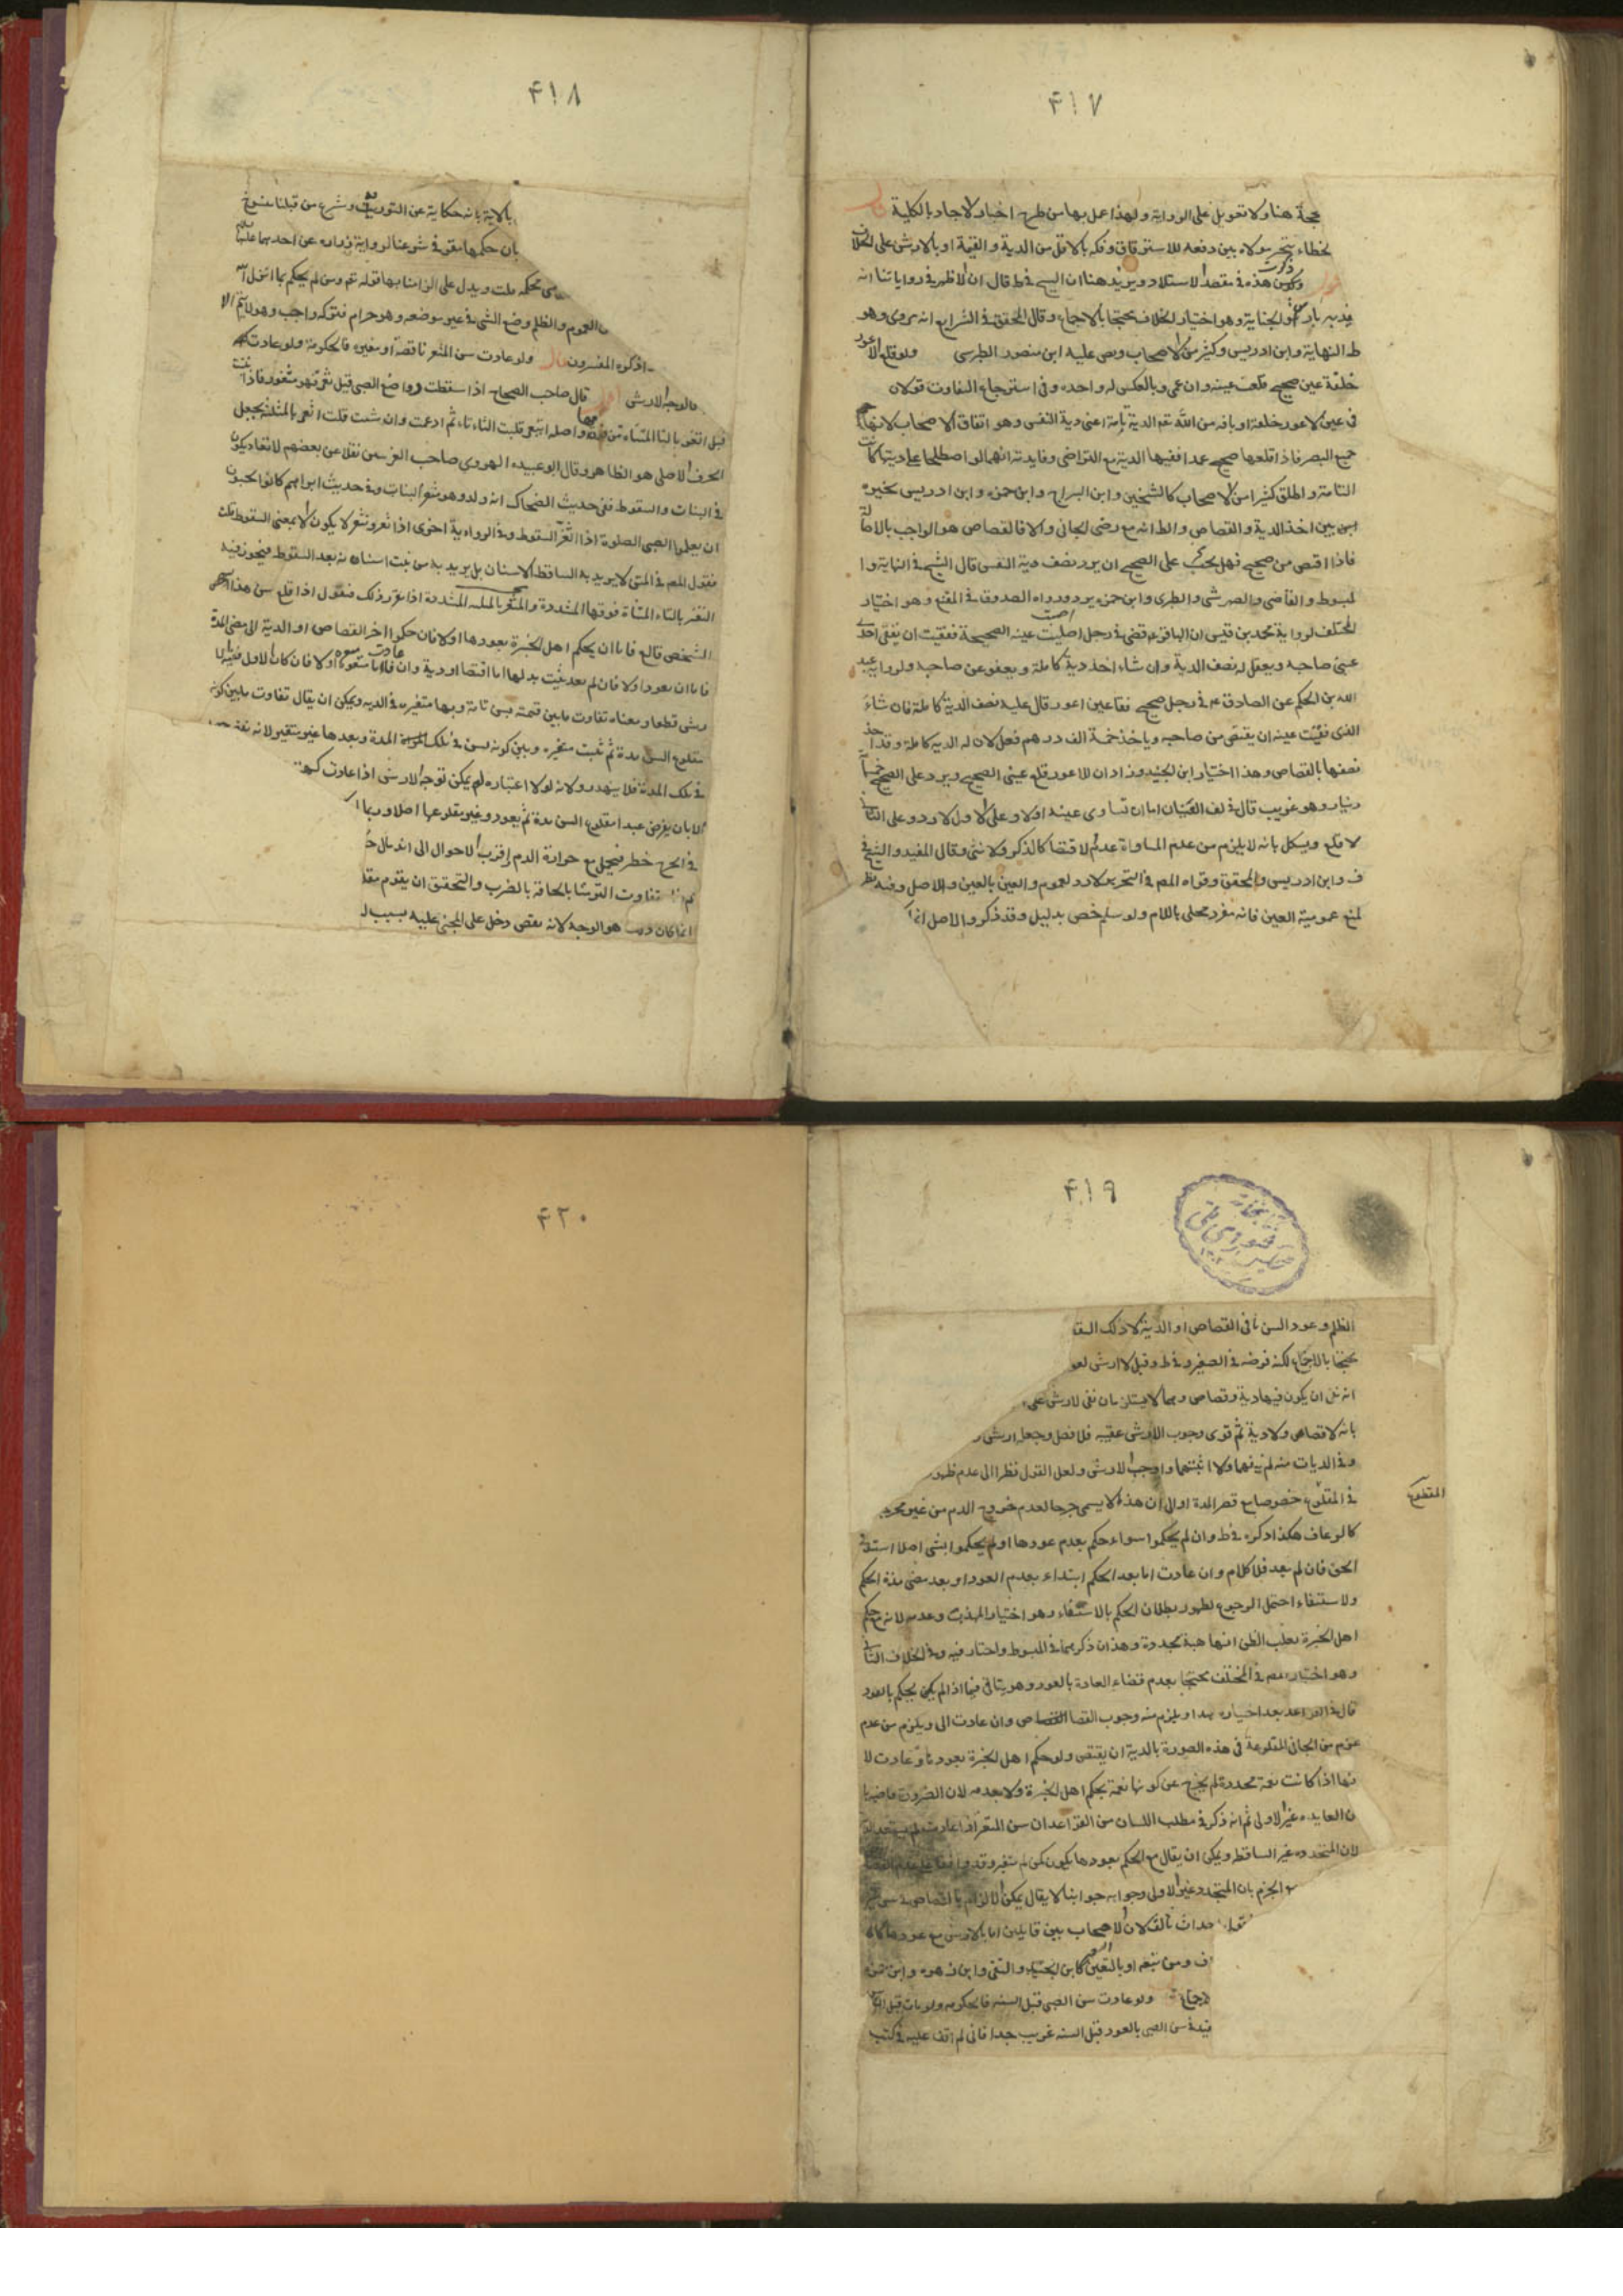 ٤١٧
حجة هنا ولا تعويل على الرواية ولهذا عمل بها من طرح اخبار الاحاد بالكلية
بخطاء يتخير مولاه بين دفعه للاسترقاق وفكه بالاقل من الدية والقيمة او بالارش على الخلاف
هذه في مقصد الاستيلاد ويزيد هنا ان الشيخ في ط قال ان الاظهر في رواياتنا انه
يفديه بارش الجناية وهو اختيار الخلاف محتجا بالاجماع وقال المحقق في الشرايع انه مروى وهو
ط النهاية وابن ادريس وكثير من الاصحاب ونص عليه ابن منصور الطبرسى ولو قلع الاعور
خلقة عين صحيح قلعت عينه وان عمى وبالعكس له واحدة وفى استرجاع التفاوت قولان
فى عين الاعور خلقة او بافة من الله تعم الدية تامة اعنى دية النفس وهو اتفاق الاصحاب لانها
جميع البصر فاذا قلعها صحيح عمدا ففيها الدية مع التراضى وفايدته انهما لو اصطلحا على ديتها كانت
التامة واطلق كثير من الاصحاب كالشيخين وابن البراج وابن حمزة وابن ادريس تخييره
بين اخذ الدية والقصاص والظ انه مع رضى الجانى والا فالقصاص هو الواجب بالاصالة
فاذا اقتص من صحيح فهل يجب على الصحيح ان يرد نصف دية النفس قال الشيخ في النهاية وا
لمبسوط والقاضى والصهرشتى والطبرسى وابن حمزة يرد ورواه الصدوق في المقنع وهو اختيار
المختلف لرواية محمد بن قيس ان الباقر ع قضى في رجل اصيبت عينه الصحيحة ففقئت ان يفقئ احدى
عينى صاحبه ويعقل له نصف الدية وان شاء اخذ دية كاملة ويعفو عن صاحبه ولرواية عبد
الله بن الحكم عن الصادق ع في رجل صحيح فقا عين اعور قال عليه نصف الدية كاملة فان شاء
الذى فقئت عينه ان يقتص من صاحبه وياخذ خمسة الف درهم فعل لان له الدية كاملة وقد اخذ
نصفها بالقصاص وهذا اختيار ابن الجنيد وزاد ان للاعور قلع عينى الصحيح ويرد على الصحيح خمسمأ
دينار وهو غريب قال في لف العينان اما ان تساوى عينه اولا وعلى الاول لا رد وعلى الثانى
لا قلع ويشكل بانه لا يلزم من عدم المساواة عدم الاقتصا كالذكر والانثى وقال المفيد والشيخ في
ف وابن ادريس والمحقق وقواه المص في التحرير لا رد لعموم والعين بالعين وللاصل وفيه نظر
لمنع عمومية العين فانه مفرد محلى باللام ولو سلم خص بدليل وقد ذكر والاصل انما
٤١٨
بالاية بانه حكاية عن التورية وشرع من قبلنا منسوخ
بان حكمها مقر في شرعنا لرواية زراره عن احدهما عليهما
محكمة قلت ويدل على الزامنا بها قوله تعم ومن لم يحكم بما انزل الله
العموم والظلم وضع الشى في غير موضعه وهو حرام فتركه واجب وهو لا يتم الا
ذكره المفسرون قال ولو عادت سن المثغر ناقصة او متغيرة فالحكومة ولو عادت كهيئتها
فالوجه الارش قال صاحب الصحاح اذا سقطت رواضع الصبى قيل ثغر فهو مثغور فاذا نبتت
قيل اتغر بالتا المثناه من فوقها واصله اثتغر قلبت الثاء تاء ثم ادغمت وان شئت قلت اثغر بالمثلثة بجعل
الحرف الاصلى هو الظاهر وقال ابو عبيده الهروى صاحب الغريبين نقلا عن بعضهم الاثغار يكون
في النبات والسقوط ففى حديث الضحاك انه ولد وهو مثغر النبات وفى حديث ابراهيم كانوا يحبون
ان يعلموا الصبى الصلوة اذا اثغر السقوط وفى الرواية اخرى اذا ثغر وثغر لا يكون الا بمعنى السقوط قلت
فقول المص في المتن لا يريد به الساقط الاسنان بل يريد به من نبت اسنانه بعد السقوط فيجوز فيه
المتغر بالتاء المثناة فوقها المشددة والمثغر بالمثلثة المشددة اذا تقرر ذلك فنقول اذا قلع سن هذا
الشخص قالع فاما ان يحكم اهل الخبرة بعودها اولا فان حكموا اخر القصاص او الدية الى مضى المدة
فاما ان يعود اولا فان لم يعد ثبت بدلها اما اقتصا او دية وان عادت فاما متغيره اولا فان كان الاول ففيه الا
رش قطعا ومعناه تفاوت ما بين قيمته بسن تامة وبها متغيره في الدية ويمكن ان يقال تفاوت ما بين كونه
مقلوع السن مدة ثم ثبت متغيره وبين كونه بسن في تلك المدة وبعدها غير متغير لانه نقص
في تلك المدة فلا يهدر ولانه لولا اعتباره لم يمكن توجه الارش اذا عادت كهيئة
الا بان يفرض عبدا مقلوع السن مدة ثم يعود وغير مقلوعها اصلا وربما
في الجرح خطر فيجعل مع حرارة الدم اقرب الاحوال الى اندمال
تفاوت القيمة بالمخافة بالضرب والتحقيق ان يقوم
انما كان هو الوجه لانه نقص دخل على المجنى عليه بسبب
٤١٩
الظلم وعود السن نافى القصاص او الدية لا ذلك النقص
محتجا بالاجماع لكنه فرضه في الصغير وفى ط وقيل لا ارش لعو
انه نفى ان يكون فيها دية وقصاص وهما لا يستلزمان نفى الارش على
بانه لا قصاص ولا دية ثم قوى وجوب الارش عقيبه فلا فصل وجعل ارش
وفى الديات منه لم ينفها ولا اثبتها واوجب الارش ولعل القول نظرا الى عدم ظهور
المقطوع
في المقلوع خصوصا مع قصر المدة او الى ان هذا لا يسمى جرحا لعدم خروج الدم من غير مجرح
كالرعاف هكذا ذكره في ط وان لم يحكموا سواء حكم بعدم عودها او لم يحكموا بشى اصلا استوفى
الحق فان لم يعد فلا كلام وان عادت اما بعد الحكم ابتداء بعدم العود او بعد مضى مدة الحكم
والاستيفاء احتمل الرجوع لظهور بطلان الحكم بالاستيفاء وهو اختيار المهذب وعدمه لانه مع حكم
اهل الخبرة يغلب الظن انها هبة مجددة وهذان ذكرهما في المبسوط واختار فيه وفى الخلاف الثانى
وهو اختيار المص في المختلف محتجا بعدم قضاء العادة بالعود وهو يتاتى فيما اذا لم يكن يحكم بالعود
قال في القواعد بعد اختياره هذا ويلزم منه وجوب القصاص وان عادت الى ويلزم من عدم
غرم من الجانى المقلوعة في هذه الصورة بالدية ان يقتص ولو حكم اهل الخبرة بعودها وعادت لا
نها اذا كانت نعمة مجددة لم يخرج عن كونها نعمة بحكم اهل الخبرة ولا بعدمه لان الضرورة قاضية با
ن العايده غير الاولى ثم انه ذكر في مطلب اللسان من القواعد ان سن المثغر اذا عادت لم يستعد الدية
لان المتجدده غير الساقط ويمكن ان يقال مع الحكم بعودها يكون كمن لم يثغر
الجزم بان المتجدد غير الاولى وجوابه جوابنا لا يقال يمكن الالزام بالقصاص في سن
احداث ثالث لان الاصحاب بين قايلين اما بالارش مع عودها كالشيخ
ف ومن تبعه او بالتعيين كابن الجنيد والتقى وابن زهره وابن حمزه
لاجماع ولو عادت سن الصبى قبل السنه فالحكومه ولو مات قبل
قيد في سن الصبى بالعود قبل السنه غريب جدا فانى لم اقف عليه في كتب
٤٢٠